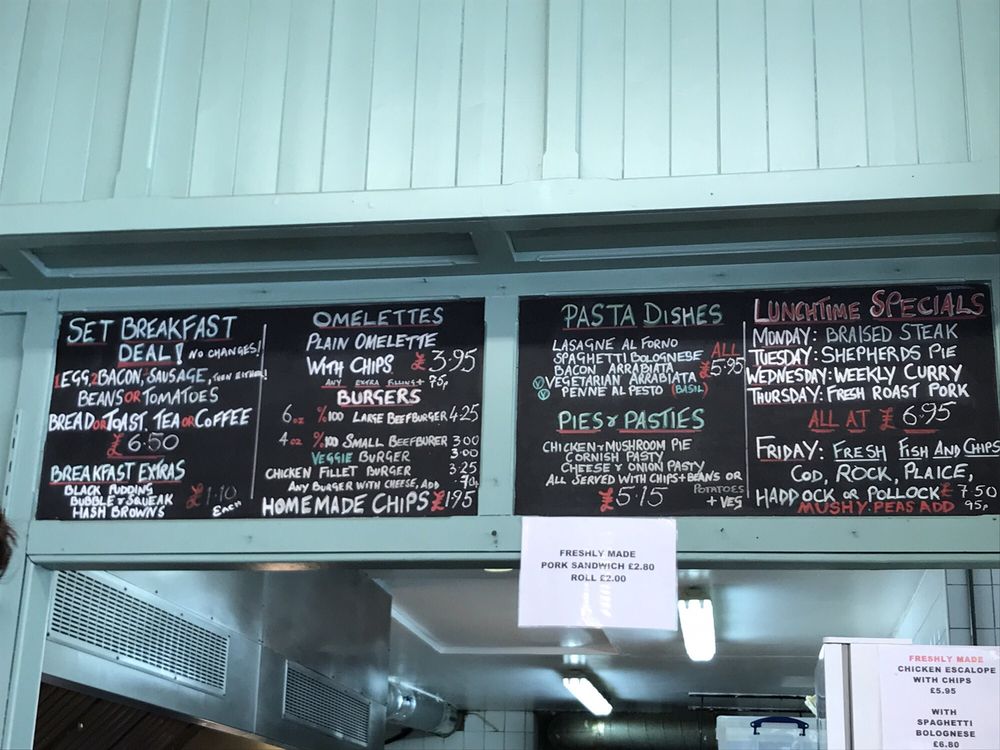 SET BREAKFAST
DEAL! NO CHANGES!
1 EGG, 2 BACON, SAUSAGE, THEN EITHER!
BEANS OR TOMATOES
BREAD OR TOAST. TEA OR COFFEE
£6.50
BREAKFAST EXTRAS
BLACK PUDDING
BUBBLE & SQUEAK
HASH BROWNS
£1.10
EACH
OMELETTES
PLAIN OMELETTE
WITH CHIPS £3.95
ANY EXTRA FILLING + 75p
BURGERS
6oz %100 LARGE BEEFBURGER 4.25
4oz %100 SMALL BEEFBURER 3.00
VEGGIE BURGER 3.00
CHICKEN FILLET BURGER 3.25
ANY BURGER WITH CHEESE, ADD 70p
HOMEMADE CHIPS £1.95
PASTA DISHES
LASAGNE AL FORNO
SPAGHETTI BOLOGNESE
BACON ARRABIATA
V VEGETARIAN ARRABIATA
V PENNE AL PESTO (BASIL)
ALL
£5.95
PIES & PASTIES
CHICKEN & MUSHROOM PIE
CORNISH PASTY
CHEESE & ONION PASTY
ALL SERVED WITH CHIPS + BEANS OR
£5.15 POTATOES
+ VEG
LUNCHTIME SPECIALS
MONDAY: BRAISED STEAK
TUESDAY: SHEPHERDS PIE
WEDNESDAY: WEEKLY CURRY
THURSDAY: FRESH ROAST PORK
ALL AT £6.95
FRIDAY: FRESH FISH AND CHIPS
COD, ROCK, PLAICE,
HADDOCK OR POLLOCK £7.50
MUSHY PEAS ADD 95p
FRESHLY MADE
PORK SANDWICH £2.80
ROLL £2.00
FRESHLY MADE
CHICKEN ESCALOPE
WITH CHIPS
£5.95
WITH
SPAGHETTI
BOLOGNESE
£6.80